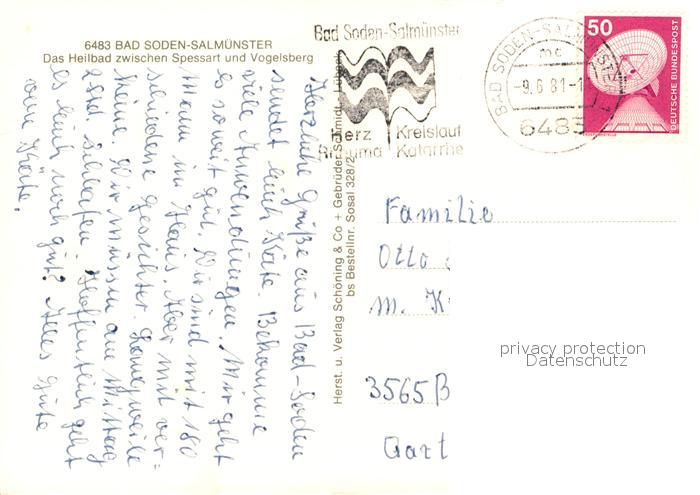 6483 BAD SODEN-SALMÜNSTER
Das Heilbad zwischen Spessart und Vogelsberg
Herzliche Grüße aus Bad-Soden
sendet Euch Käte. Bekomme
viele Anwendungen. Mir geht
es soweit gut. Wir sind mit 180
Mann im Haus. Aber mit ver-
schiedene Gesichter. Langeweile
keine. Wir müssen am Mittag
2 Std. schlafen. Hoffentlich geht
es Euch noch gut? Alles Gute
von Käte.
Herst. u. Verlag Schöning & Co + Gebrüder Schmidt, Lübeck
bs Bestellnr. Sosal 328/2
Bad Soden-Salmünster
Herz Kreislauf
Rheuma Katarrhe
BAD SODEN-SALMÜNSTER 1
-9.6.81-1
6483
50
DEUTSCHE BUNDESPOST
Familie
Otto
M. K
3565 B
Gart
privacy protection
Datenschutz